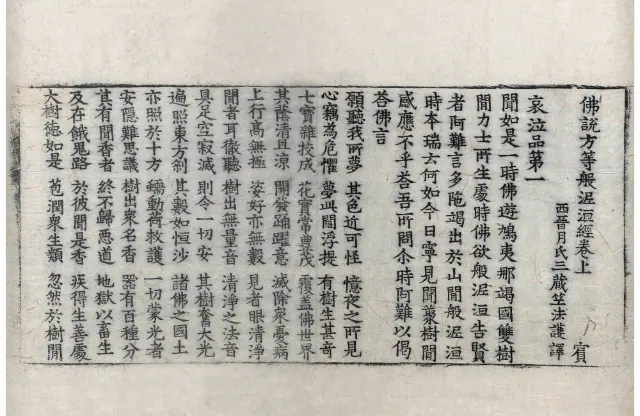 佛説方等般泥洹經卷上 賓
西晉月氏三藏竺法護譯
哀泣品第一
聞如是一時佛遊鳩夷那竭國雙樹
間力士所生處時佛欲般泥洹告賢
者阿難言多陁竭出於山間般泥洹
時本瑞云何如今日寧見聞樹間
感應不乎荅吾所問尒時阿難以偈
荅佛言
願聽我所夢 其色近可怪 憶夜之所見
心竊為危懼 夢此閻浮提 有樹生甚奇
七寶雜挍成 花實常豊茂 覆蓋佛世界
其蔭清且涼 開發踊躍意 滅除衆憂病
上行髙無極 姿好亦無 見者眼清淨
聞者耳徹聽 樹出無量音 清淨之法音
具足空寂滅 則令一切安 其樹奮大光
遍照東方刹 其數如恒沙 諸佛之國土
亦照於十方 蠕動荷救護 一切蒙光者
安隱難思議 樹出衆名香 器有百種分
其有聞香者 終不歸惡道 地獄以畜生
及在餓鬼路 於彼聞是香 疾得生善處
大樹徳如是 苞潤衆生類 忽然於樹間